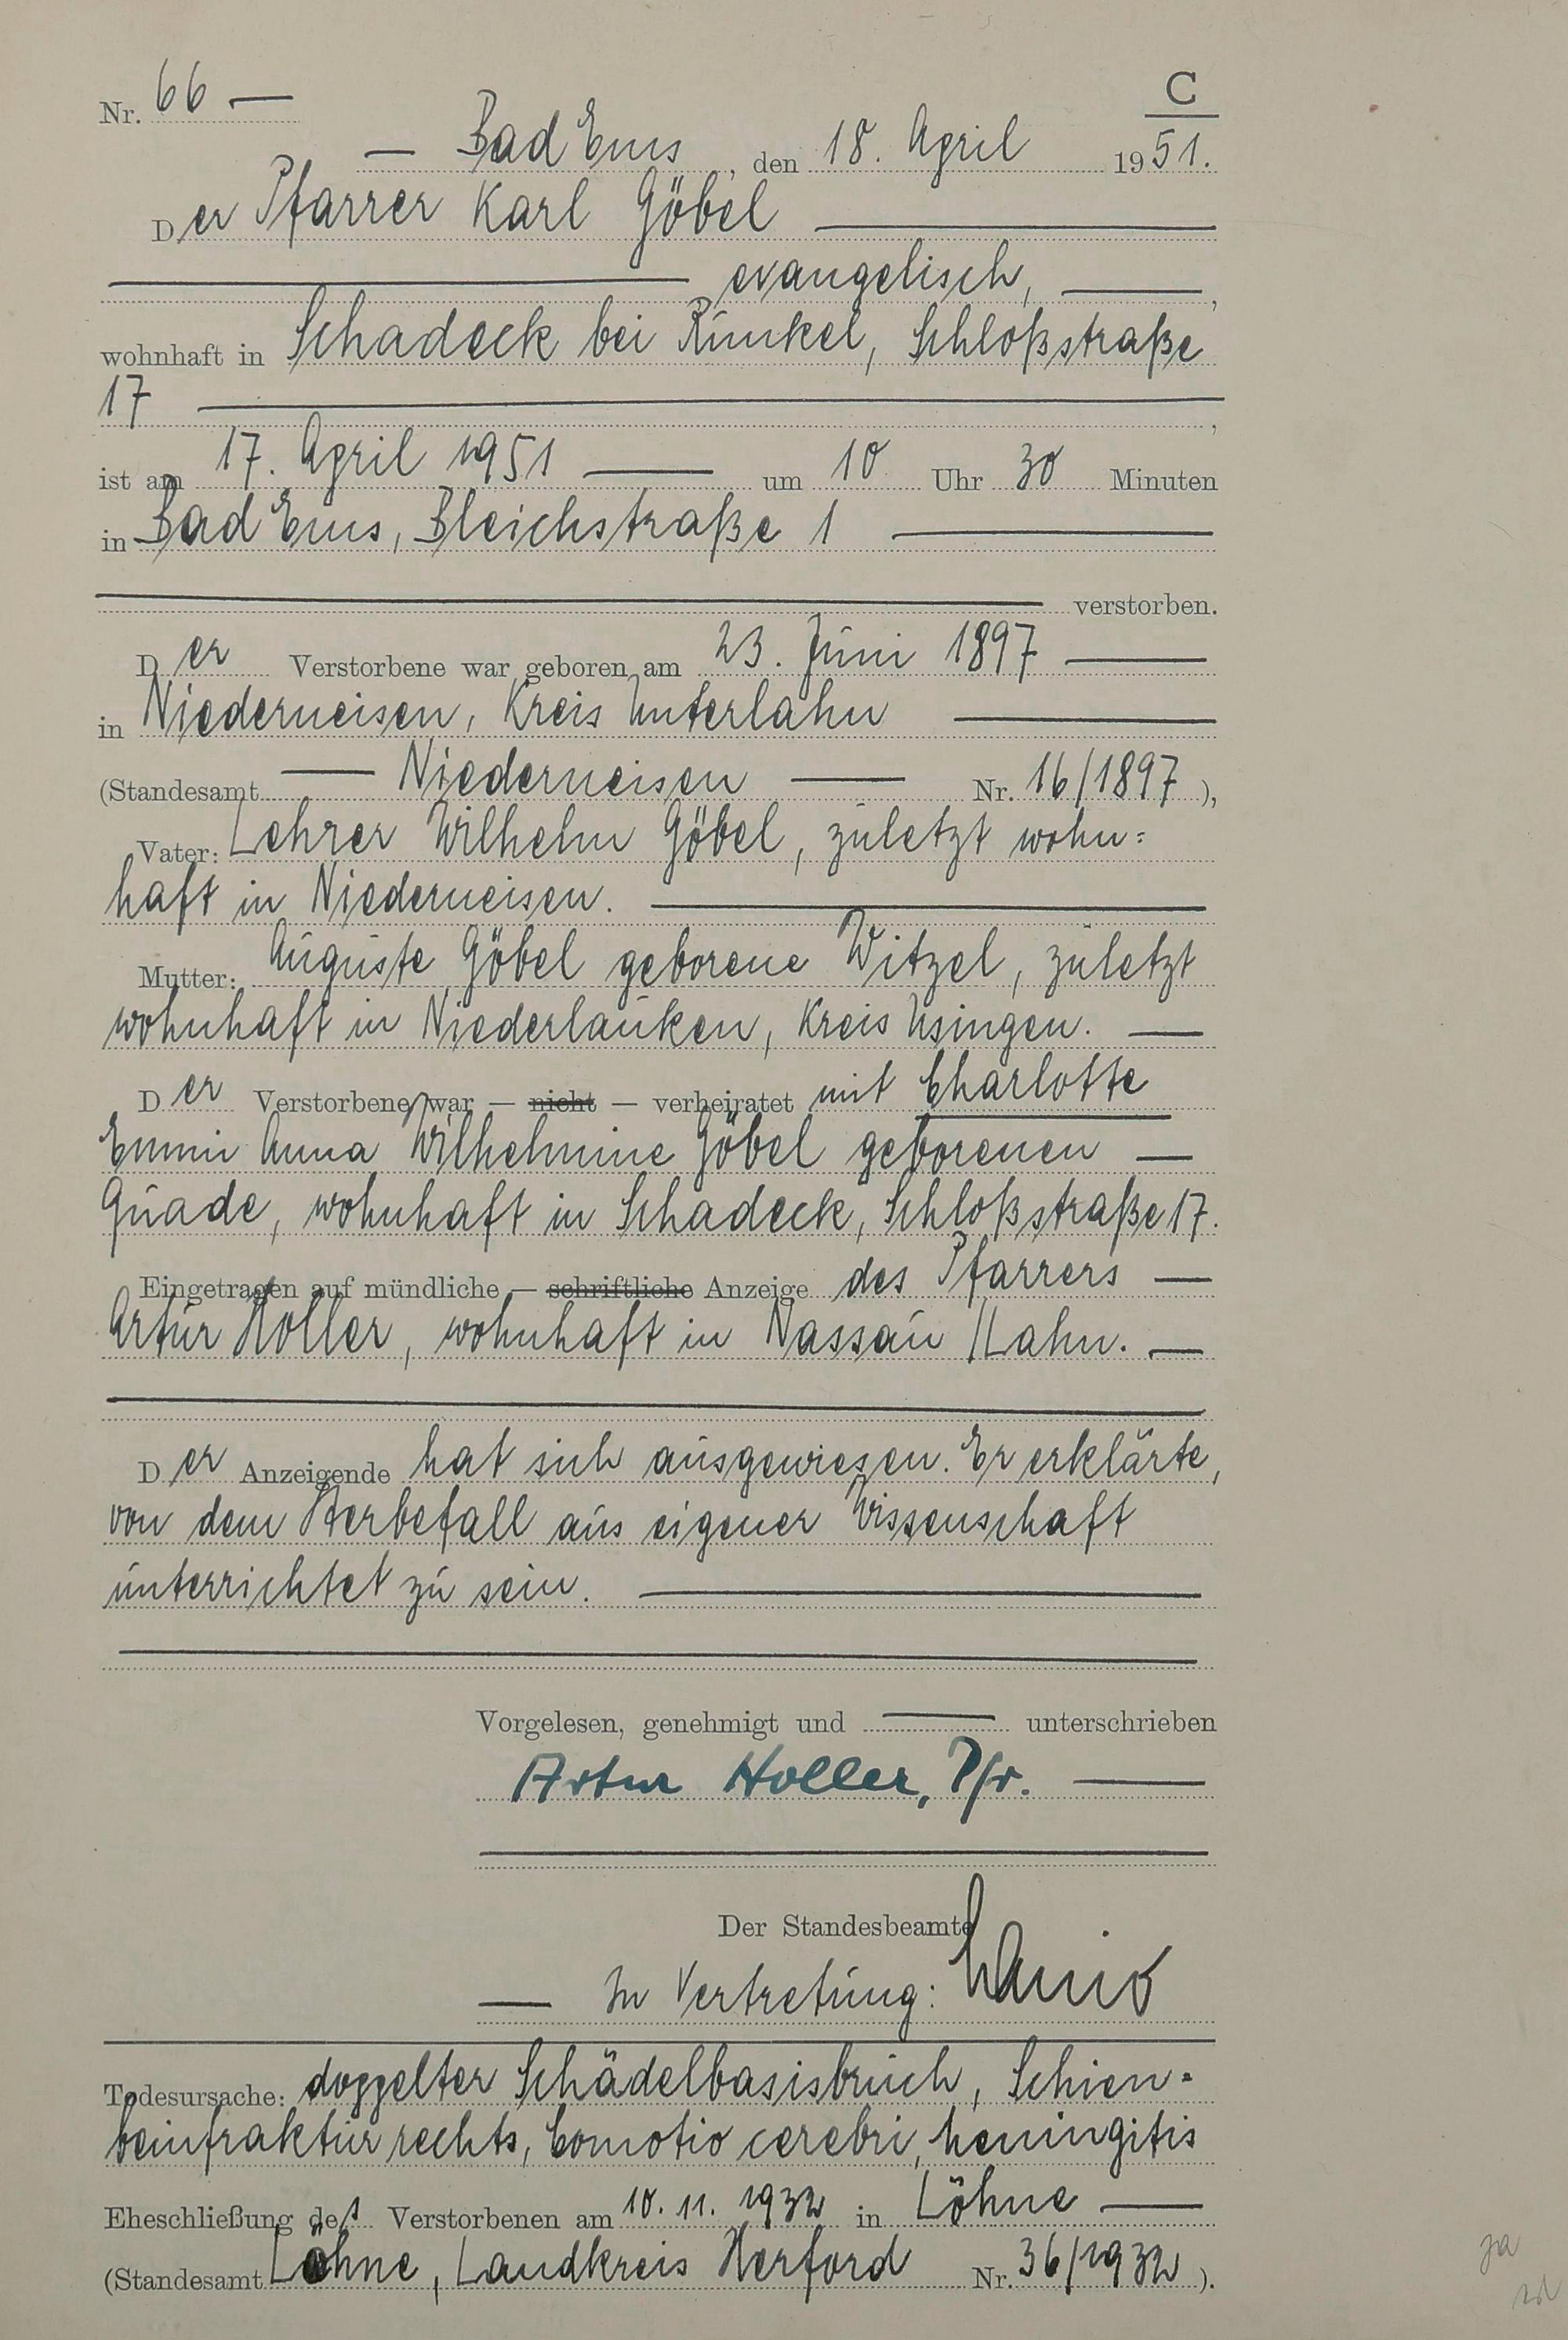 Nr. 66 —
C
— Bad Ems, den 18. April 1951.
Der Pfarrer Karl Göbel —
— evangelisch, —,
wohnhaft in Schadeck bei Runkel, Schloßstraße
17 —,
ist am 17. April 1951 — um 10 Uhr 30 Minuten
in Bad Ems, Bleichstraße 1 —
— verstorben.
Der Verstorbene war geboren am 23. Juni 1897 —
in Niederneisen, Kreis Unterlahn —
(Standesamt — Niederneisen — Nr. 16/1897),
Vater: Lehrer Wilhelm Göbel, zuletzt wohn=
haft in Niederneisen. —
Mutter: Auguste Göbel geborene Witzel, zuletzt
wohnhaft in Niederlauken, Kreis Usingen. —
Der Verstorbene war — nicht — verheiratet mit Charlotte
Emmi Anna Wilhelmine Göbel geborenen —
Quade, wohnhaft in Schadeck, Schloßstraße 17.
Eingetragen auf mündliche — schriftliche Anzeige des Pfarrers —
Artur Holler, wohnhaft in Nassau/Lahn. —
Der Anzeigende hat sich ausgewiesen. Er erklärte,
von dem Sterbefall aus eigener Wissenschaft
unterrichtet zu sein. —
Vorgelesen, genehmigt und — unterschrieben
Artur Holler, Pfr. —
Der Standesbeamte
— In Vertretung:
Todesursache: doppelter Schädelbasisbruch, Schien=
beinfraktur rechts, Comotio cerebri, Meningitis
Eheschließung des Verstorbenen am 10. 11. 1932 in Löhne —
(Standesamt Löhne, Landkreis Herford Nr. 36/1932).